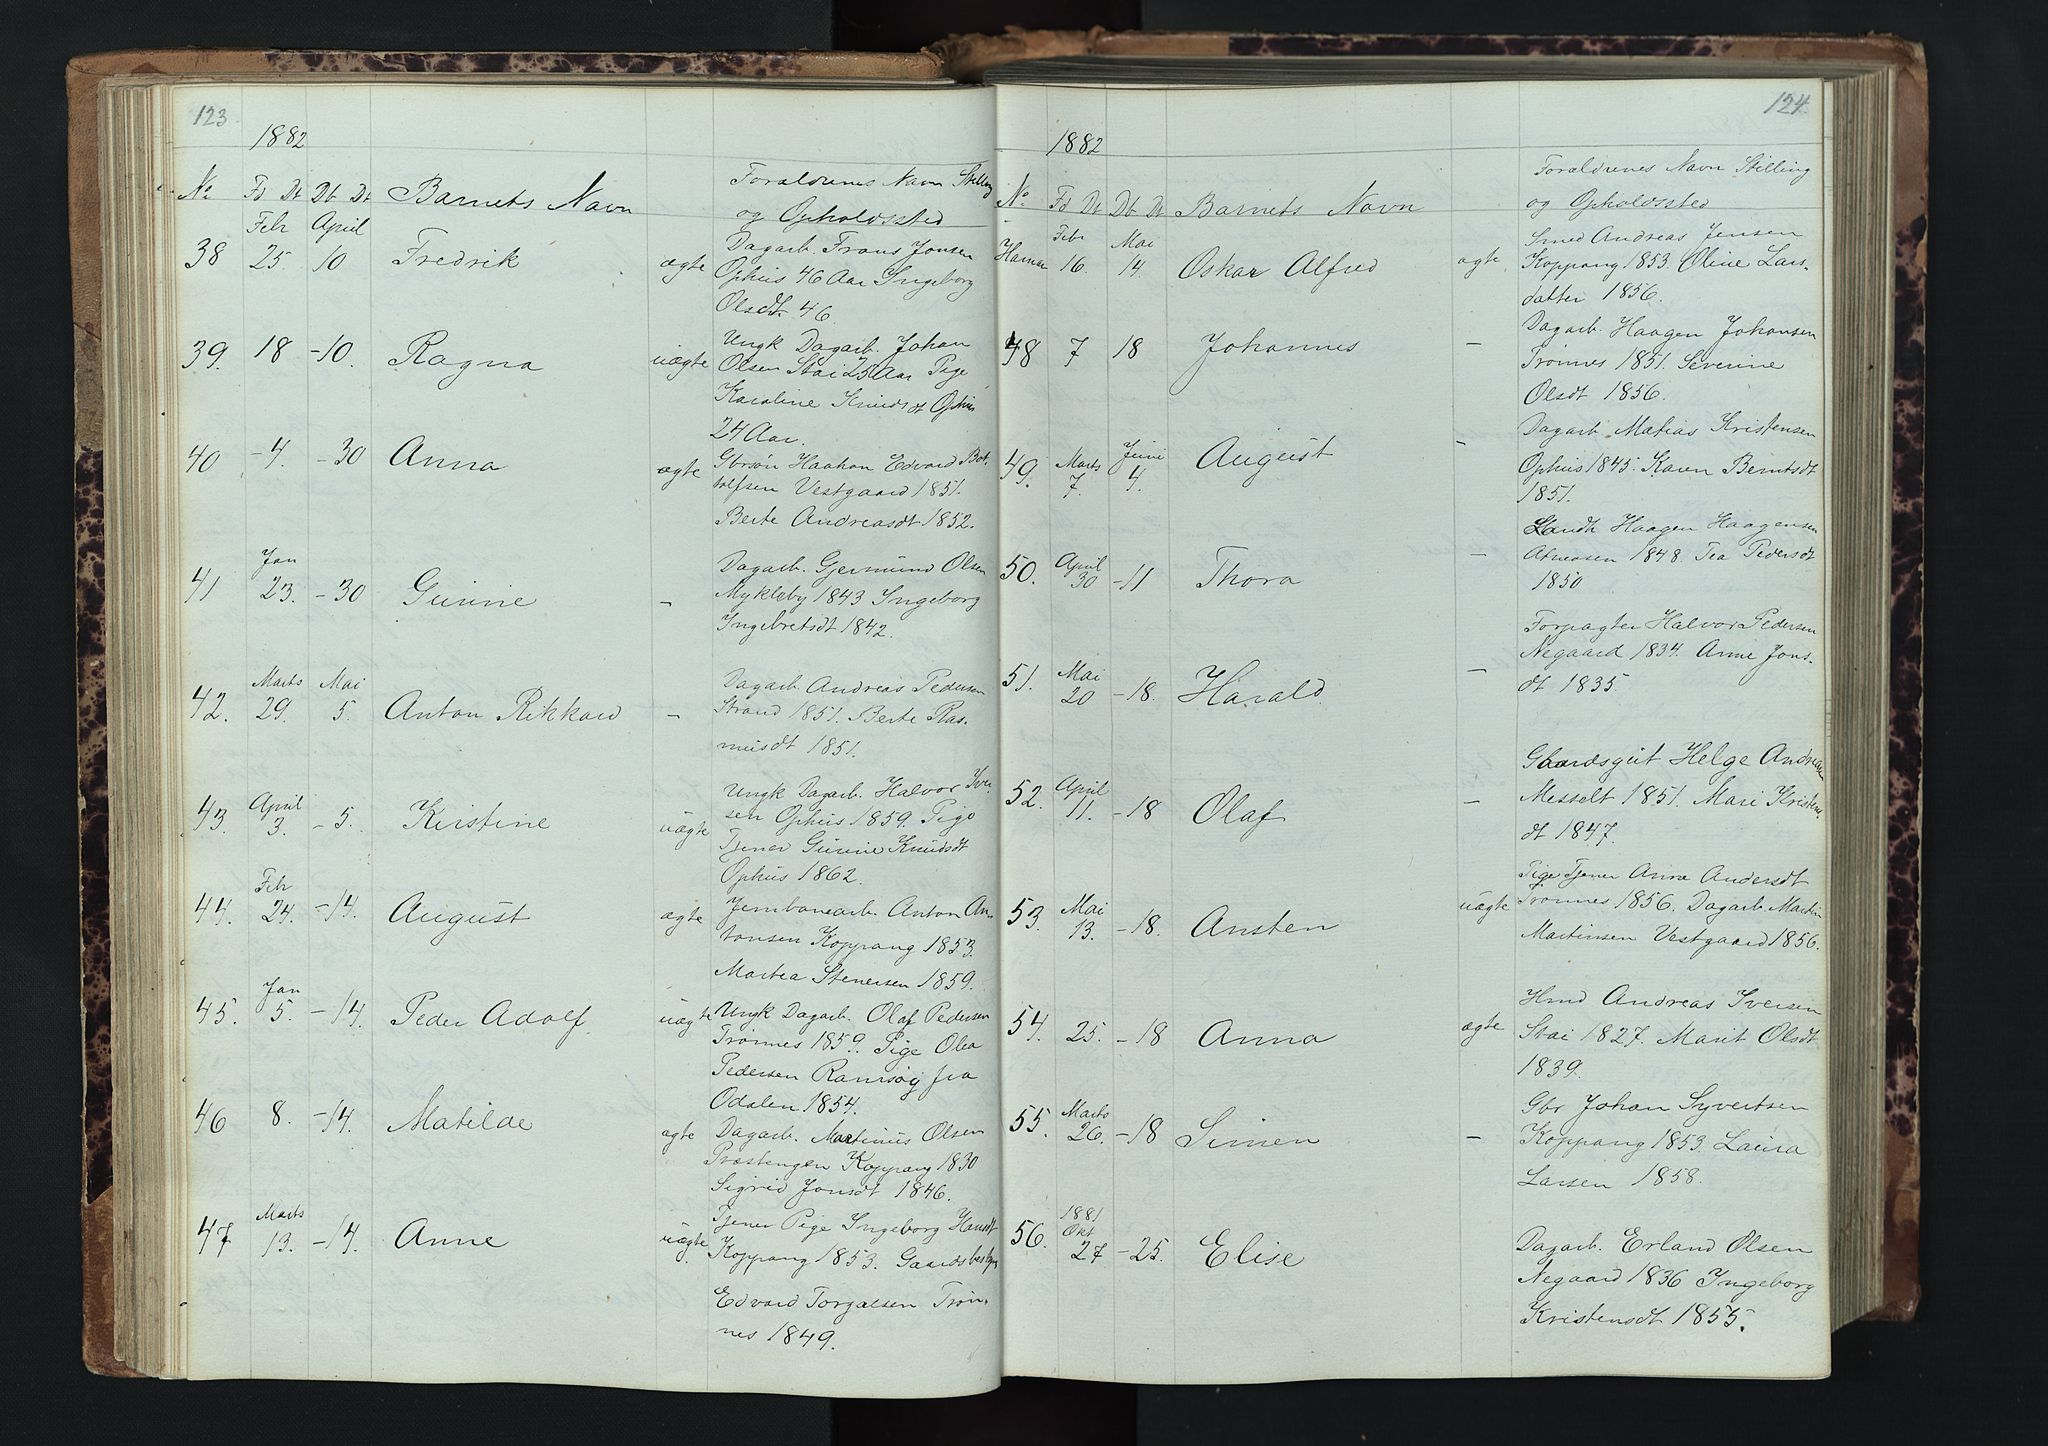 123
1882
No Fd Dt Db Dt Barnets Navn Foraldrenes Navn Stilling
og Opholdssted
Feb April
38 25. 10 Fredrik ægte Dagarb. Frans Jonsen
Ophus 46 Aar Ingeborg
Olsdt. 46
39. 18 -10. Ragna uægte Ungk Dagarb. Johan
Olsen Stai 25 Aar Pige
Karoline Knudsdt Ophus
24 Aar.
40 -4. -30 Anna ægte Gbrsön Haakon Edvard Bot-
tolfsen Vestgaard 1851.
Berte Andreasdt 1852.
Jan
41 23. -30 Gunine - Dagarb. Gjermund Olsen
Mykleby 1843 Ingeborg
Ingebretsdt 1842.
Marts Mai
42. 29. 5. Anton Rikkard - Dagarb. Andreas Pedersen
Strand 1851. Berte Ras-
musdt 1851.
April
43. 3. -5. Kirstine uægte Ungk Dagarb. Halvor Iver-
sen Ophus 1859. Pige
Tjener Gunine Knudsdt
Ophus 1862.
Feb
44. 24. -14. August ægte Jernbanearb. Anton An-
tonsen Koppang 1853.
Martea Stenersen 1859.
Jan
45. 5. -14. Peder Adolf. uægte Ungk Dagarb. Olaf Pedersen
Trønnes 1859. Pige Olea
Pedersen Ramsøg fra
Odalen 1854.
46 8. -14. Matilde ægte Dagarb. Martinus Olsen
Præstengen Koppang 1830
Sigrid Jonsdt 1846.
Marts
47 13. -14. Anne uægte Tjener Pige Ingeborg Hansdt
Koppang 1853. Gaardsbestyr
Edvard Torgalsen Trøn-
nes 1849.
124.
1882
No. Fd Dt Db Dt Barnets Navn Foraldrenes Navn Stilling
og Opholdssted
Feb Mai
Hamar 16. 14. Oskar Alfred ægte Smed Andreas Jensen
Koppang 1853. Oline Lars-
datter 1856.
48 7 18 Johannes - Dagarb. Haagen Johansen
Trønnes 1851. Severine
Olsdt 1856.
Marts Juni
49. 7. 4. August - Dagarb Matias Kristensen
Ophus 1845. Karen Berntsdt
1851.
April
50. 30 -11 Thora - Landh Haagen Haagensen
Atneosen 1848. Tea Pedersdt
1850
Mai
51. 20 -18. Harald. - Forpagter Halvor Pedersen
Negaard 1834. Anne Jons-
dt 1835.
April
52. 11. -18 Olaf - Gaardsgut Helge Andreasen
Messelt 1851. Mari Kristens
dt 1847.
Mai
53. 13. -18. Ansten uægte Pige Tjener Anne Andersdt
Trønnes 1856. Dagarb. Martin
Martinsen Vestgaard 1856.
54. 25. -18 Anna ægte Hmd Andreas Iversen
Stai 1827. Marit Olsdt
1839.
Marts
55. 26. -18 Simen - Gbr Johan Syvertsen
Koppang 1853. Laura
Larsen 1858.
1881
Okt
56. 27 -25. Elise Dagarb. Erland Olsen
Negaard 1836 Ingeborg
Kristensdt 1855.